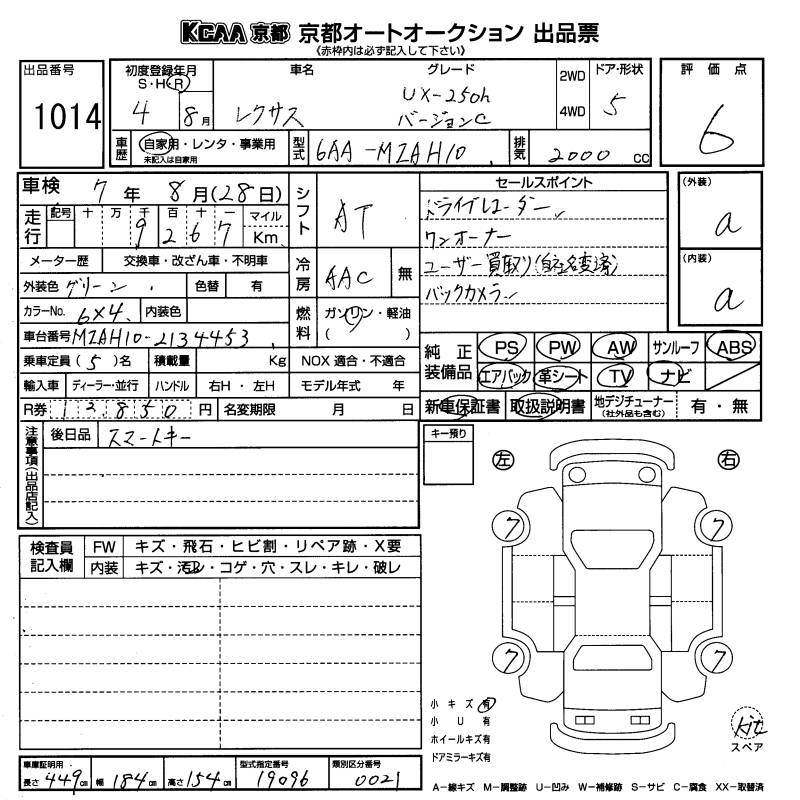 KCAA 京都 京都オートオークション 出品票
《赤枠内は必ず記入して下さい》
出品番号
1014
初度登録年月
S・H・R
4 8月
車名
レクサス
グレード
UX-250h
バージョンC
2WD
4WD
ドア・形状
5
評価点
6
車歴
自家用・レンタ・事業用
未記入は自家用
型式
6AA-MZAH10
排気
2000 cc
車検 7年 8月(28日)
走行
記号 十 万 千 百 十 一 マイル
9 2 6 7 Km
メーター歴 交換車・改ざん車・不明車
外装色 グリーン 色替 有
カラーNo. 6X4 内装色
車台番号 MZAH10-2134453
乗車定員 (5)名 積載量 Kg
輸入車 ディーラー・並行 ハンドル 右H・左H
R券 12850円 名変期限 月 日
シフト AT
冷房 AAC 無
燃料 ガソリン・軽油
( )
NOX 適合・不適合
モデル年式 年
セールスポイント
ドライブレコーダー
ワンオーナー
ユーザー買取り(自社名変済)
バックカメラ
(外装)
a
(内装)
a
純正装備品
PS PW AW サンルーフ ABS
エアバック 革シート TV ナビ
新車保証書 取扱説明書 地デジチューナー(社外品も含む) 有・無
注意事項(出品店記入)
後日品 スマートキー
キー預り
検査員記入欄
FW キズ・飛石・ヒビ割・リペア跡・X要
内装 キズ・汚レ・コゲ・穴・スレ・キレ・破レ
左 右
7 7
7 7
小キズ有
小U有
ホイールキズ有
ドアミラーキズ有
kit
スペア
車庫証明用
長さ 449cm 幅 184cm 高さ 154cm
型式指定番号
19096
類別区分番号
0021
A―線キズ M―調整跡 U―凹み W―補修跡 S―サビ C―腐食 XX―取替済